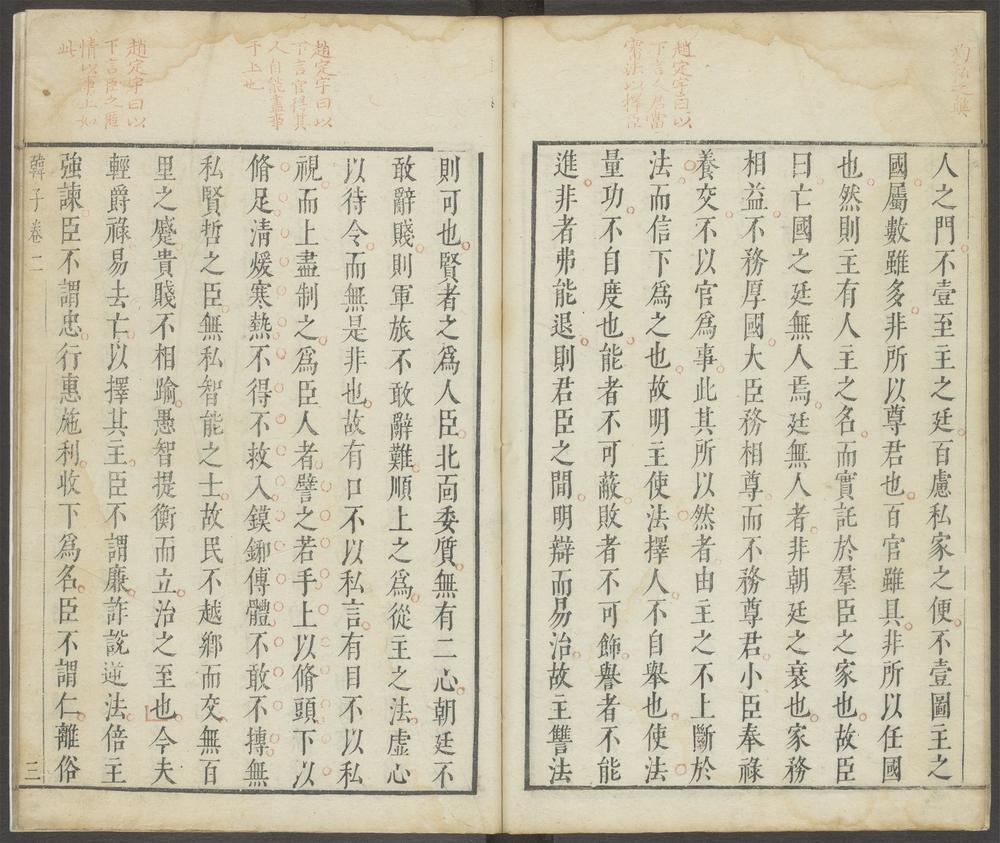 豹狐之類
趙定宇曰以
下言人君當
審法以擇臣
人之門不壹至主之廷百慮私家之便不壹圖主之
國屬數雖多非所以尊君也百官雖具非所以任國
也然則主有人主之名而實託於羣臣之家也故臣
曰亡國之廷無人焉廷無人者非朝廷之衰也家務
相益不務厚國大臣務相尊而不務尊君小臣奉祿
養交不以官爲事此其所以然者由主之不上斷於
法而信下爲之也故明主使法擇人不自舉也使法
量功不自度也能者不可蔽敗者不可飾譽者不能
進非者弗能退則君臣之間明辯而易治故主讐法
趙定宇曰以
下言官得其
人自能盡事
于上也
趙定宇曰以
下言臣之匿
情以事上如
此
則可也賢者之爲人臣北面委質無有二心朝廷不
敢辭賤則軍旅不敢辭難順上之爲從主之法虛心
以待令而無是非也故有口不以私言有目不以私
視而上盡制之爲臣人者譬之若手上以脩頭下以
脩足清煖寒熱不得不救入鏌鋣傅體不敢不摶無
私賢哲之臣無私智能之士故民不越鄉而交無百
里之慼貴賤不相踰愚智提衡而立治之至也今夫
輕爵祿易去亡以擇其主臣不謂廉詐說逆法倍主
強諫臣不謂忠行惠施利收下爲名臣不謂仁離俗
韓子卷二
三